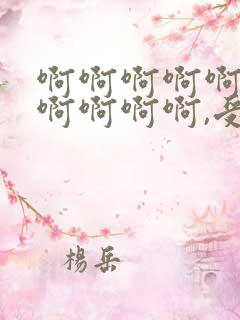 啊啊啊啊啊
啊啊啊啊,受
楊岳